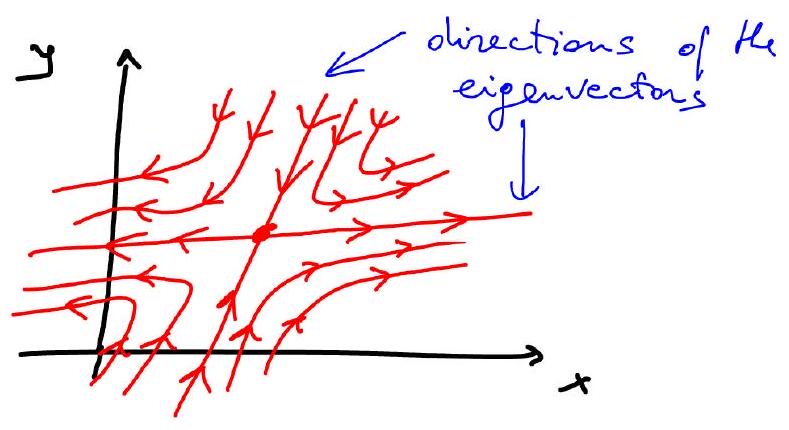 directions of the
eigenvectors
y
x